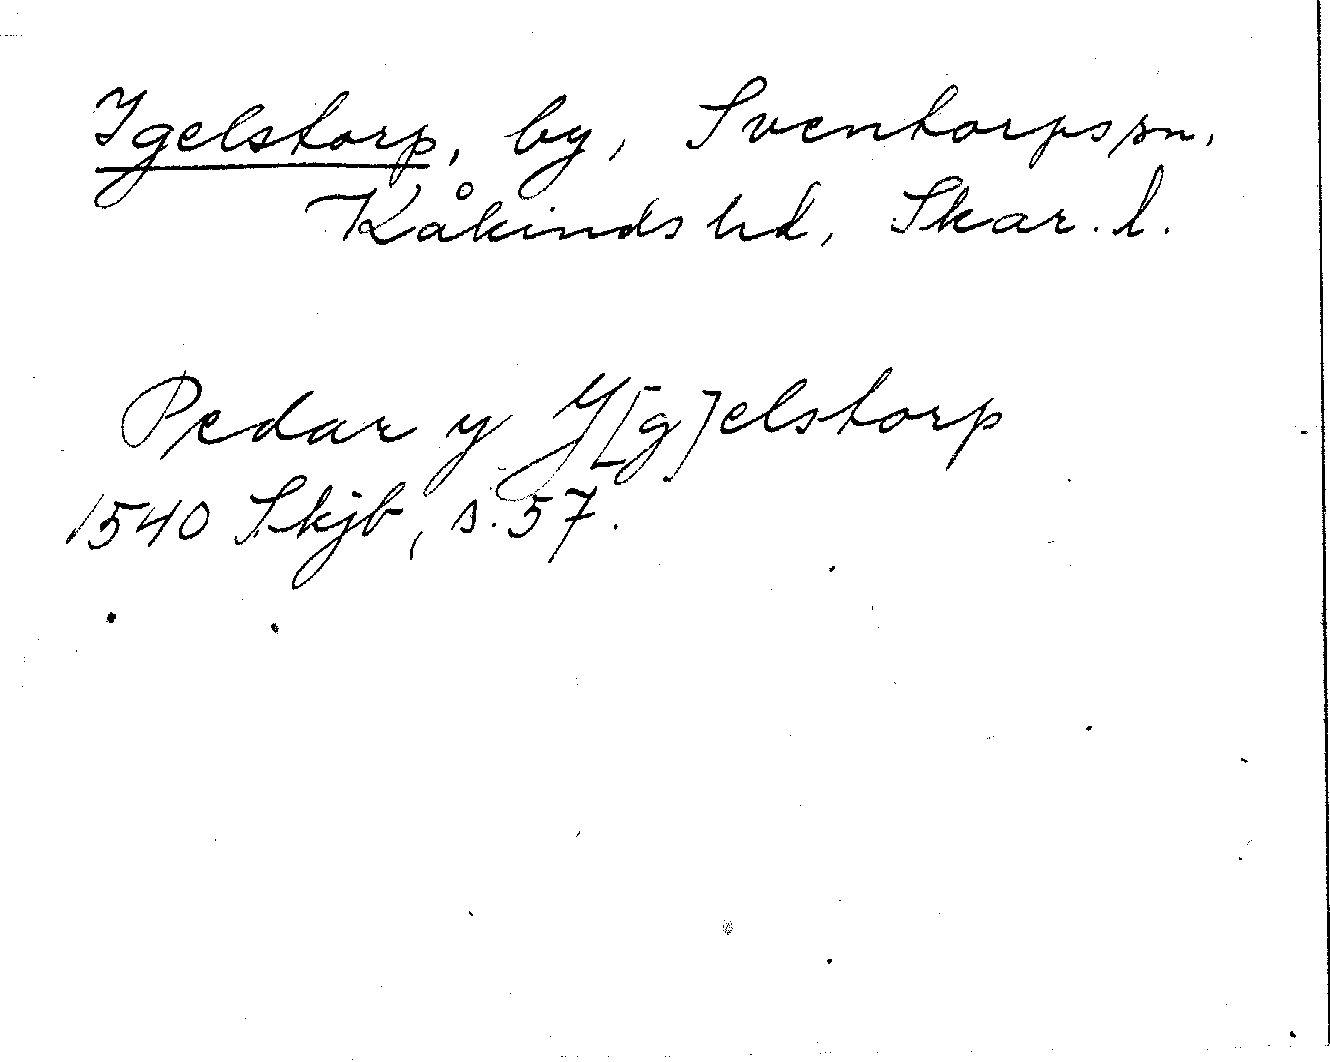 Igelstorp, by, Sventorps sn,
Kåkinds hd, Skar. l.
Pedar y Y[g]elstorp
1540 Skjb, s. 57.